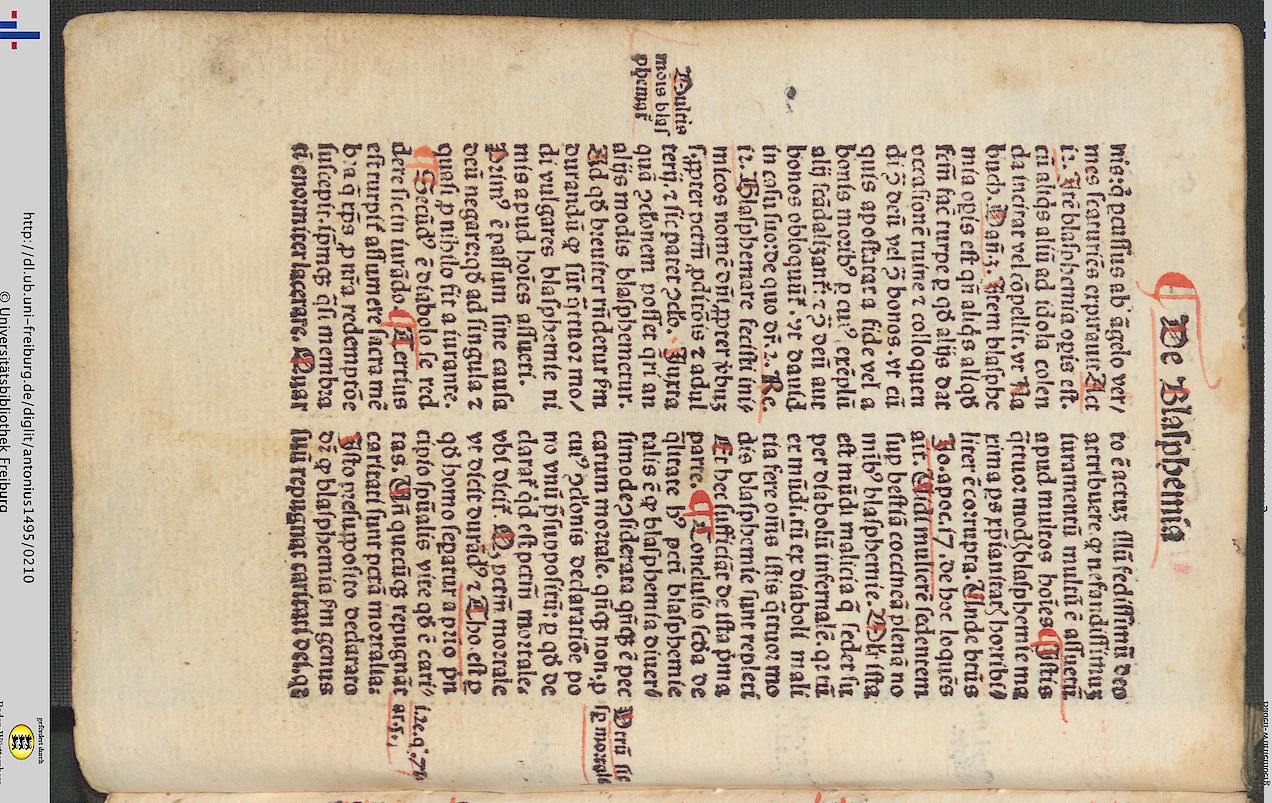 ¶ De Blasphemia
mis. q̃ percussus ab āgelo ver/
mes scaturiēs expirauit. Act
12. Itē blasphemia opis est.
cū aliq̄s aliū ad idola colen
da incitat vel cōpellit. vt Na
buch. Dañ. 3. Item blasphe
mia opis est qñ aliq̄s aliqd
fcm̄ fac turpe p qd alijs dat
occasionē ruine ⁊ colloquen
di ꝯ deū vel ꝯ bonos. vt cū
quis apostatat a fide vel a
bonis morib⁹ p cui⁹ exēplū
alij scādalizant̄: ⁊ ꝯ deū aut
bonos obloquūt̄. vt dauid
in casu suo: de quo dr̄. 2. Re.
12. Blasphemare fecisti ini/
micos nomē dñi ꝓpter v̓buȝ
s. ꝓpter pctm̄ ꝓditiōis ⁊ adul
terij. ⁊ sic patet ꝯclo. Juxta
quā ꝯclonem posset qri an
alijs modis blasphemetur.
Ad qd breuiter rñdetur fm
durandū ꝙ sūt q̄tuor mo/
di vulgares blasphemie ni
mis apud hoīes assueti.
Prim⁹ ē passim sine causa
deū negare: qd ad singula ⁊
quasi p nihilo fit a iurante.
¶ Secūd⁹ ē diabolo se red
dere sic in iurādo ¶ Tertius
est turpit̓ assumere sacra mē
bra q̄ xp̄s p nr̄a redemptōe
suscepit. ipm̄qȝ q̄si membra
tī enormiter lacerare. Quar
Multis
mōis blas
phemat̄
to ē actuȝ illū fedissimū deo
attribuere. ꝙ nefandissimuȝ
iuramentū multū ē assuetū
apud multos hoīes ¶ Istis
q̄tuor modȝ blasphemie ma
xima ps xp̄ianitatȝ horribi/
liter ē corrupta. Unde btūs
Jo. apoc. 17. de hoc loquēs
ait. Vidi muliere sedentem
sup bestiā coccineā plenā no
mīb⁹ blasphemie. Mli ista
est mūdi malicia q̄ sedet su
per diaboli infernalē. qr tū
et mūdi. tū et diaboli mali
cia fere oīs istis q̄tuor mo
dis blasphemie sunt repleti
Et hec sufficiāt de ista pma
parte. ¶ Conclusio scda de
q̄litate h⁹ pcti blasphemie
talis ē ꝙ blasphemia diuer/
simode ꝯsiderata qñqȝ ē pec
catum mortale. qñqȝ non. p
cui⁹ ꝯclonis declaratiōe po
no vnū p̄suppositū: p qd de
clarat̄ qd est pctm̄ mortale.
vbi dicit ꝙ pctm̄ mortale
vt dicit durād⁹ ⁊ Tho. est p
qd homo separatur a prio pn
cipio spūalis vite qd ē cari/
tas. Uñ quecūqȝ repugnāt
caritati sunt pctā mortalia.
Isto presupposito declarato
dr̄ ꝙ blasphemia fm genus
suū repugnat caritati dei. qꝛ
Pctū sit
sp mortale
i. 2e. q. 72
ar. 5.
http://dl.ub.uni-freiburg.de/diglit/antonius1495/0210
© Universitätsbibliothek Freiburg
gefördert durch